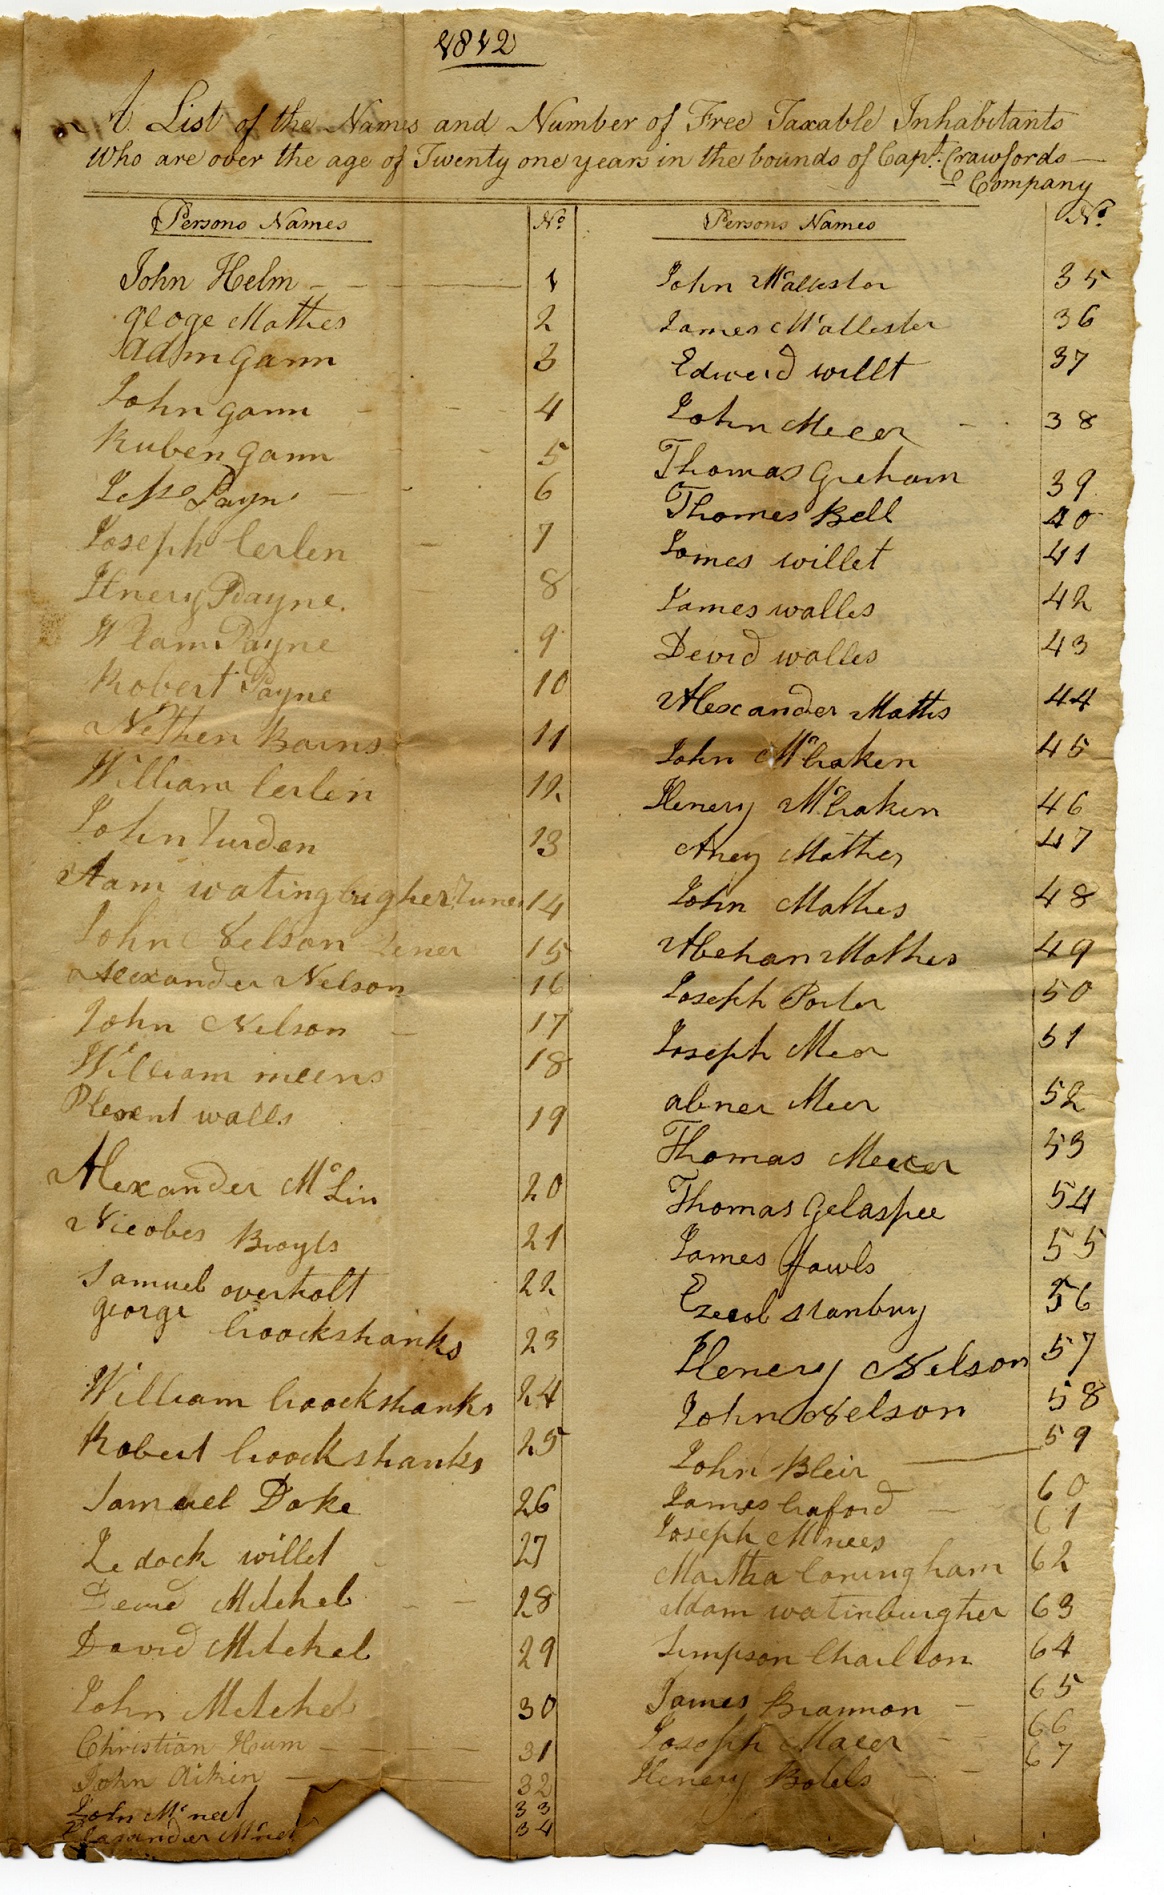 1812
A List of the Names and Number of Free Taxable Inhabitants
Who are over the age of Twenty one years in the bounds of Capt. Crawfords
Company
Persons Names No.
John Helm 1
geoge Mathes 2
Adm gann 3
John gann 4
Ruben gann 5
Jesse Payn 6
Joseph Cerlen 7
Henery Payne 8
Wlam Payne 9
Robert Payne 10
Nethen Barns 11
William Cerlen 12
John 13
Adam watingbugher Juner 14
John Nelson Juner 15
Alexander Nelson 16
John Nelson 17
William meens 18
Plesent walls 19
Alexander McLin 20
Nicobes Broyls 21
Samuel overholt 22
george Croockshanks 23
William Croockshanks 24
Robert Croockshanks 25
Samuel Doke 26
Zedock willet 27
Devid Mitchel 28
David Mitchel 29
John Mitchel 30
Christian Hum 31
John Aikin 32
John McNeel 33
Elaxander 34
Persons Names No.
John Mcallester 35
James Mcallester 36
Edward willt 37
John Mecer 38
Thomas Greham 39
Thomes Bell 40
James willet 41
James walles 42
Devid walles 43
Alexander Mathes 44
John McCraken 45
Henery McCraken 46
Mathes 47
John Mathes 48
Abehan Mathes 49
Joseph Porter 50
Joseph Meer 51
abner Meer 52
Thomas Mercer 53
Thomas Gelaspee 54
James fowls 55
stanbury 56
Henery Nelson 57
John Nelson 58
John Bleir 59
James Craford 60
Joseph Mcnees 61
Martha Coningham 62
Adam watinburgher 63
Simpson Charlton 64
James Brannon 65
Joseph Macer 66
Henery Bolels 67